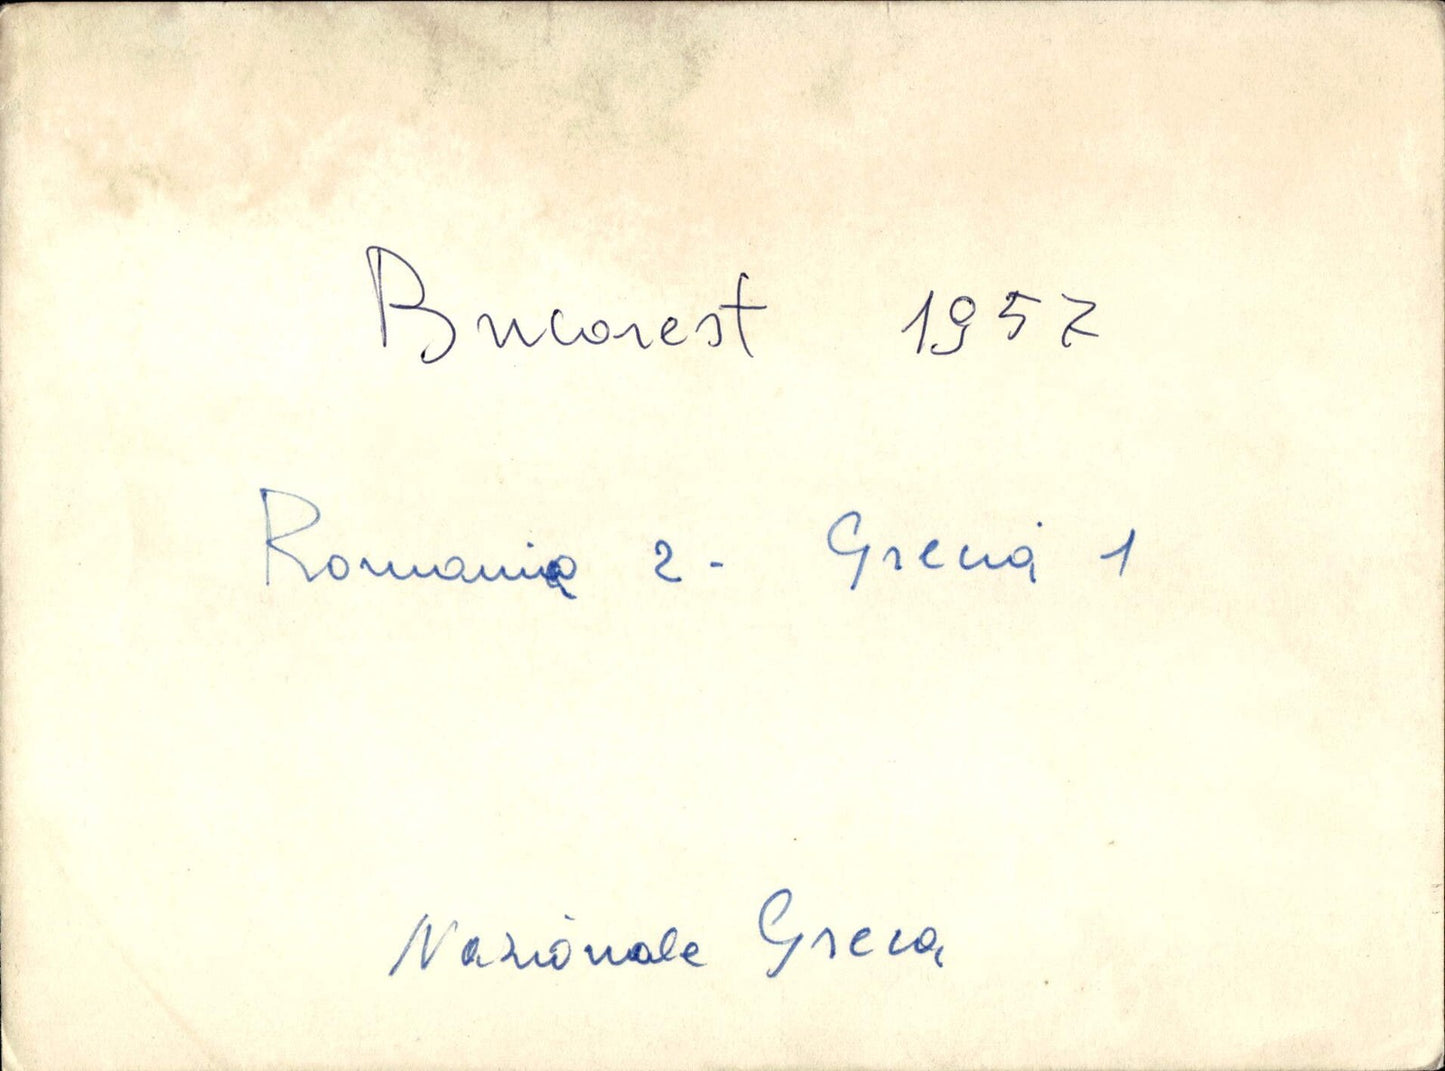 Bucarest 1957
Romania 2 - Grecia 1
Nazionale Greca